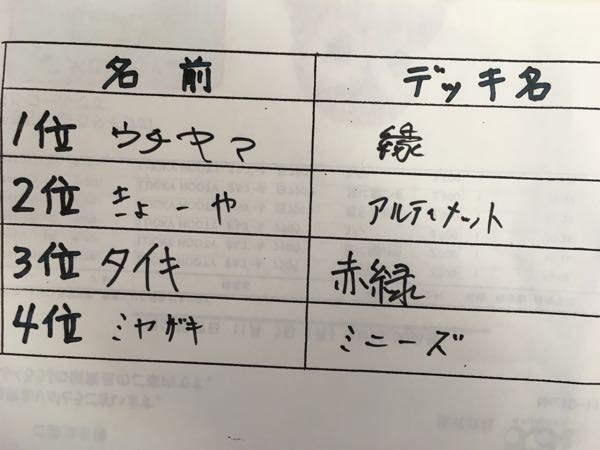 名前 デッキ名
1位 ウチヤマ 緑
2位 きょーや アルティメット
3位 タイキ 赤緑
4位 ミヤザキ ミニーズ